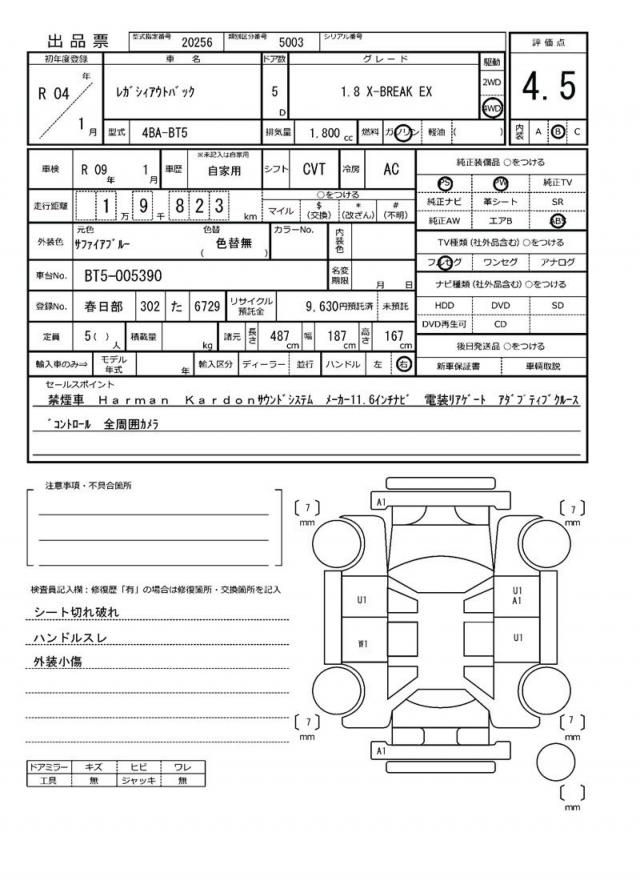 出品票 型式指定番号 20256 類別区分番号 5003 シリアル番号
評価点
4.5
初年度登録 車名 ドア数 グレード 駆動
R 04 年 1 月 ﾚｶﾞｼｨｱｳﾄﾊﾞｯｸ 5 D 1.8 X-BREAK EX 2WD 4WD
型式 4BA-BT5 排気量 1.800 cc 燃料 ガソリン 軽油 ( )
内装 A B C
車検 R 09 年 1 月 車歴 ※未記入は自家用 自家用 シフト CVT 冷房 AC
純正装備品 ○をつける
PS PW 純正TV
走行距離 1 万 9 千 8 2 3 km ○をつける
マイル $ (交換) * (改ざん) # (不明)
純正ナビ 革シート SR
純正AW エアB ABS
外装色 元色 ｻﾌｧｲｱﾌﾞﾙｰ 色替 ( 色替無 ) カラーNo. 内装色
TV種類 (社外品含む) ○をつける
フルセグ ワンセグ アナログ
車台No. BT5-005390 名変期限 月 日
ナビ種類 (社外品含む) ○をつける
登録No. 春日部 302 た 6729 リサイクル預託金 9,630円預託済 未預託
HDD DVD SD
DVD再生可 CD
定員 5( ) 人 積載量 kg 諸元 長さ 487 cm 幅 187 cm 高さ 167 cm
後日発送品 ○をつける
輸入車のみ⇒ モデル年式 年 輸入区分 ディーラー 並行 ハンドル 左 右
新車保証書 車輌取説
セールスポイント
禁煙車 Ｈａｒｍａｎ Ｋａｒｄｏｎｻｳﾝﾄﾞｼｽﾃﾑ ﾒｰｶｰ11.6ｲﾝﾁﾅﾋﾞ 電装ﾘｱｹﾞｰﾄ ｱﾀﾞﾌﾟﾃｨﾌﾞｸﾙｰｽ
ﾞｺﾝﾄﾛｰﾙ 全周囲ｶﾒﾗ
注意事項・不具合箇所
検査員記入欄：修復歴「有」の場合は修復箇所・交換箇所を記入
シート切れ破れ
ハンドルスレ
外装小傷
ドアミラー キズ ヒビ ワレ
工具 無 ジャッキ 無
[ 7 ] mm A1 [ 7 ] mm
U1 U1
A1
W1 U1
[ 7 ] mm A1 [ 7 ] mm
[ ] mm